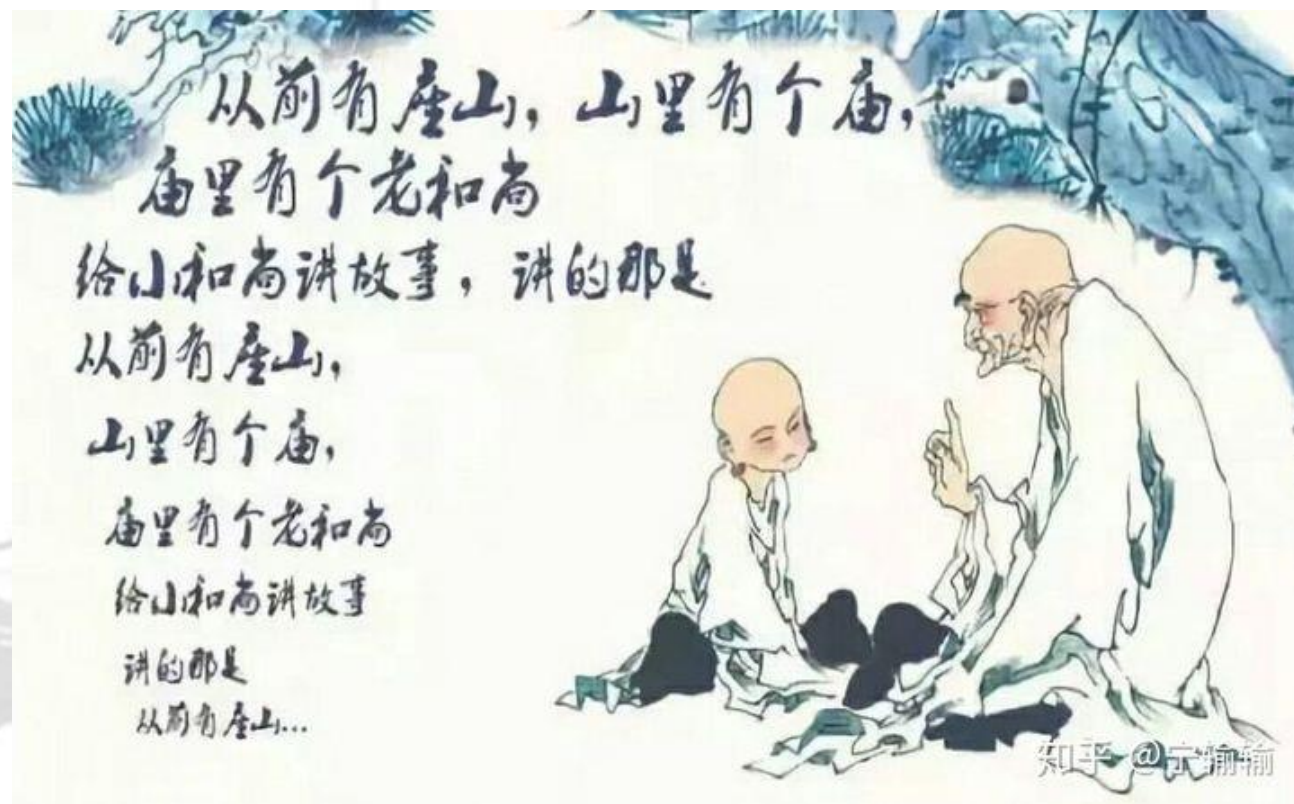 从前有座山，山里有个庙，
庙里有个老和尚
给小和尚讲故事，讲的那是
从前有座山，
山里有个庙，
庙里有个老和尚
给小和尚讲故事
讲的那是
从前有座山...
知乎 @宁输输